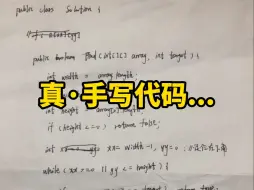 public class Solution {
public boolean Find(int[][] array, int target) {
int width = array.length;
int height = array.length;
真·手写代码...
if (height <= 0) return false;
int xx = width-1, yy=0;
while (xx >= 0 || yy <= height) {